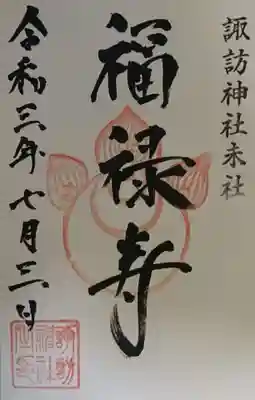 諏訪神社末社
福禄寿
令和三年七月三日
諏訪
神社